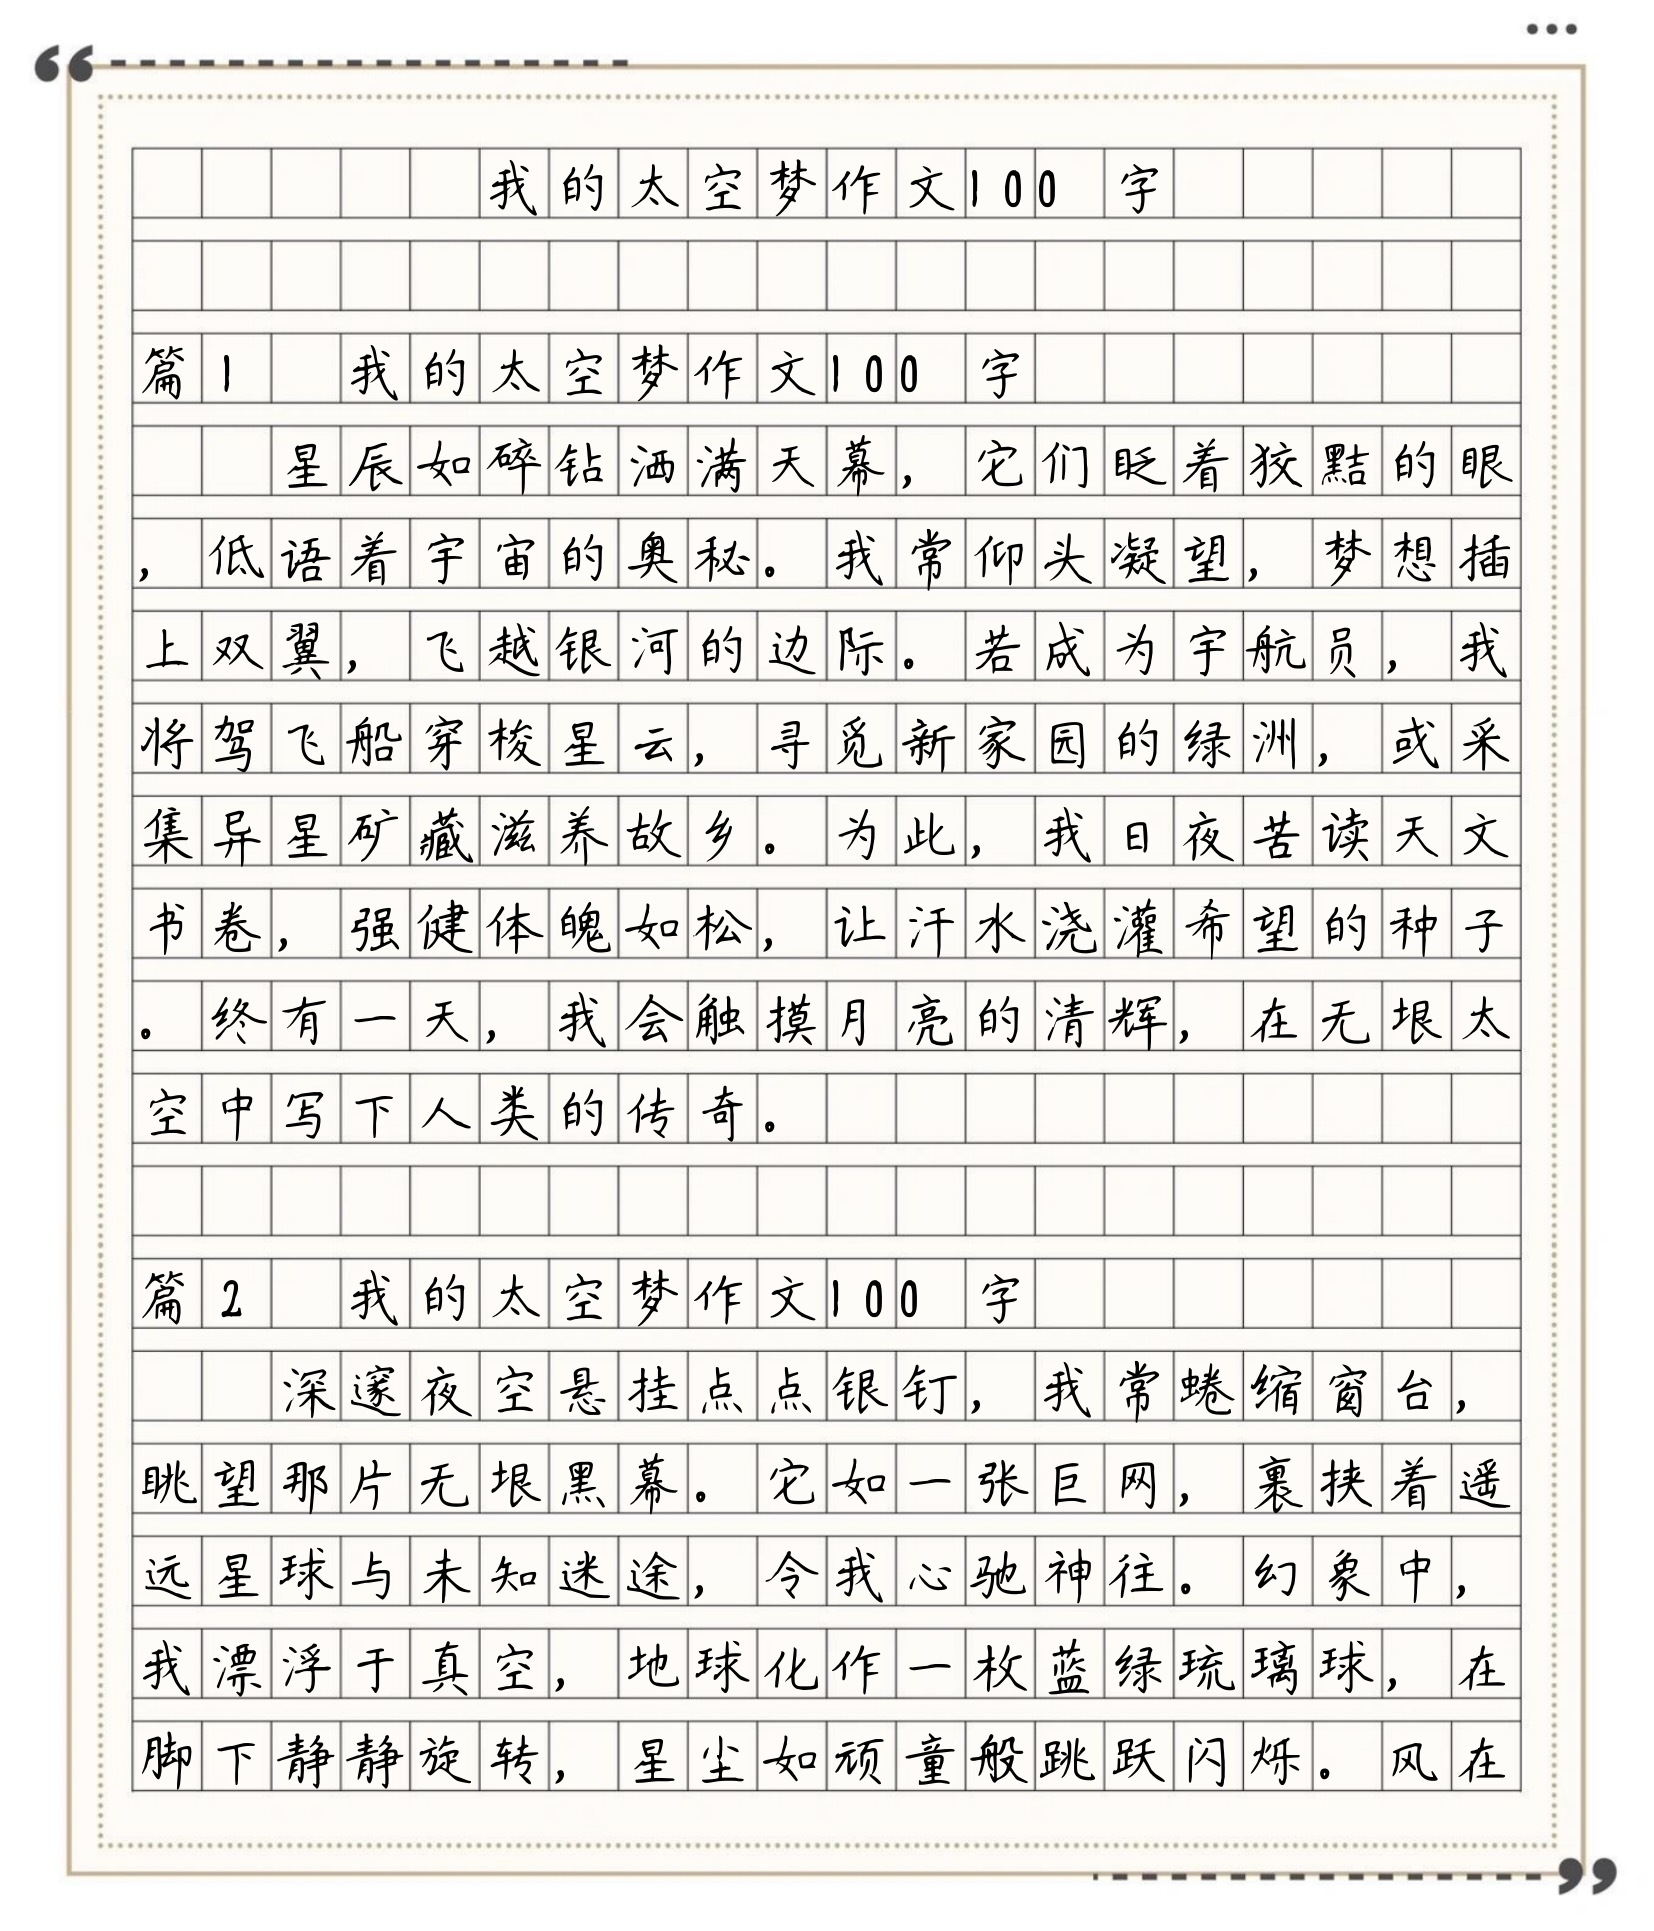 我的太空梦作文100 字
篇1 我的太空梦作文100 字
星辰如碎钻洒满天幕，它们眨着狡黠的眼
，低语着宇宙的奥秘。我常仰头凝望，梦想插
上双翼，飞越银河的边际。若成为宇航员，我
将驾飞船穿梭星云，寻觅新家园的绿洲，或采
集异星矿藏滋养故乡。为此，我日夜苦读天文
书卷，强健体魄如松，让汗水浇灌希望的种子
。终有一天，我会触摸月亮的清辉，在无垠太
空中写下人类的传奇。
篇2 我的太空梦作文100 字
深邃夜空悬挂点点银钉，我常蜷缩窗台，
眺望那片无垠黑幕。它如一张巨网，裹挟着遥
远星球与未知迷途，令我心驰神往。幻象中，
我漂浮于真空，地球化作一枚蓝绿琉璃球，在
脚下静静旋转，星尘如顽童般跳跃闪烁。风在